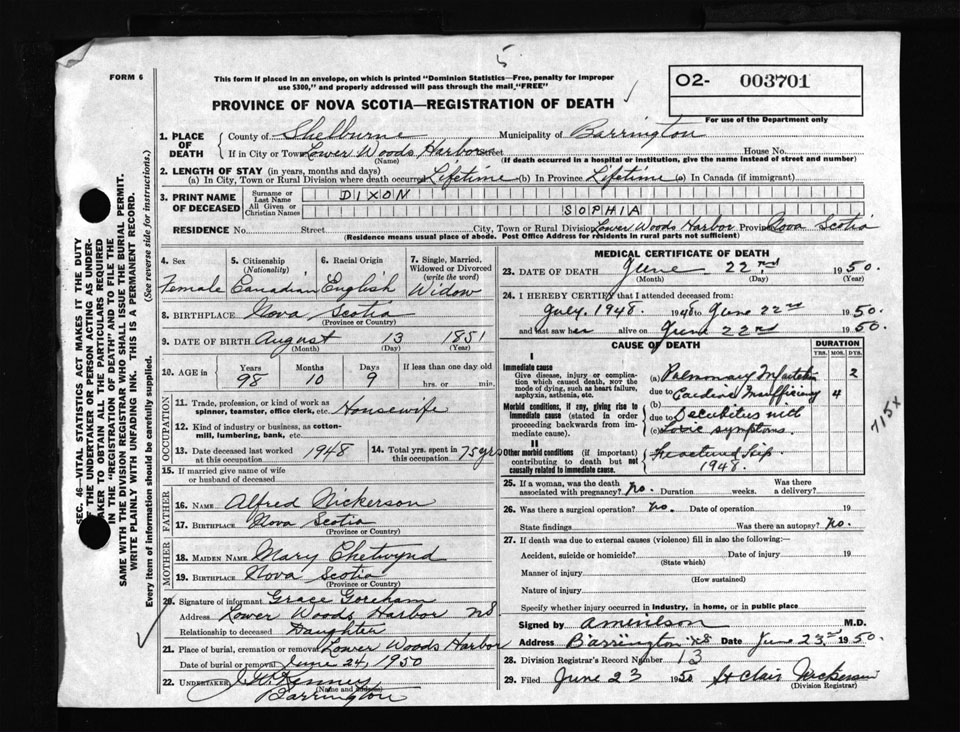 5
FORM 6
This form if placed in an envelope, on which is printed "Dominion Statistics—Free, penalty for improper
use $300," and properly addressed will pass through the mail "FREE"
PROVINCE OF NOVA SCOTIA—REGISTRATION OF DEATH
O2- 003701
For use of the Department only
SEC. 46—VITAL STATISTICS ACT MAKES IT THE DUTY
OF THE UNDERTAKER OR PERSON ACTING AS UNDER-
TAKER TO OBTAIN ALL THE PARTICULARS REQUIRED
IN THE "REGISTRATION OF DEATH" AND TO FILE THE
SAME WITH THE DIVISION REGISTRAR WHO SHALL ISSUE THE BURIAL PERMIT.
WRITE PLAINLY WITH UNFADING INK. THIS IS A PERMANENT RECORD.
Every item of information should be carefully supplied. (See reverse side for instructions.)
1. PLACE OF DEATH County of Shelburne Municipality of Barrington
If in City or Town Lower Woods Harbor Street House No.
(Name) (If death occurred in a hospital or institution, give the name instead of street and number)
2. LENGTH OF STAY (in years, months and days)
(a) In City, Town or Rural Division where death occurred Lifetime (b) In Province Lifetime (c) In Canada (if immigrant)
3. PRINT NAME OF DECEASED Surname or Last Name DIXON
All Given or Christian Names SOPHIA
RESIDENCE No. Street City, Town or Rural Division Lower Woods Harbor Province Nova Scotia
(Residence means usual place of abode. Post Office Address for residents in rural parts not sufficient)
4. Sex 5. Citizenship (Nationality) 6. Racial Origin 7. Single, Married, Widowed or Divorced (write the word)
Female Canadian English Widow
8. BIRTHPLACE Nova Scotia
(Province or Country)
9. DATE OF BIRTH August 13 1851
(Month) (Day) (Year)
10. AGE in Years Months Days If less than one day old
98 10 9 hrs. or min.
OCCUPATION
11. Trade, profession, or kind of work as
spinner, teamster, office clerk, etc. Housewife
12. Kind of industry or business, as cotton-
mill, lumbering, bank, etc.
13. Date deceased last worked at this occupation 1948 14. Total yrs. spent in this occupation 75 yrs
15. If married give name of wife
or husband of deceased
FATHER
16. NAME Alfred Nickerson
17. BIRTHPLACE Nova Scotia
(Province or Country)
MOTHER
18. MAIDEN NAME Mary Chetwynd
19. BIRTHPLACE Nova Scotia
(Province or Country)
20. Signature of informant Grace Goreham
Address Lower Woods Harbor NS
Relationship to deceased Daughter
21. Place of burial, cremation or removal Lower Woods Harbor
Date of burial or removal June 24, 1950
22. UNDERTAKER J. H. Kenney
(Name and address)
Barrington
MEDICAL CERTIFICATE OF DEATH
23. DATE OF DEATH June 22nd. 1950.
(Month) (Day) (Year)
24. I HEREBY CERTIFY that I attended deceased from:
July. 1948 1948 to June 22nd 1950
and last saw her alive on June 22nd 1950.
CAUSE OF DEATH DURATION
YRS. MOS. DYS.
I
Immediate cause
Give disease, injury or complica-
tion which caused death, NOT the
mode of dying, such as heart failure,
asphyxia, asthenia, etc.
(a) Pulmonary 2
due to Cardiac Insufficiency 4
Morbid conditions, if any, giving rise to
immediate cause (stated in order
proceeding backwards from im-
mediate cause).
(b)
due to Decubitus with
(c) Toxic symptoms.
715x
II
Other morbid conditions (if important)
contributing to death but not
causally related to immediate cause.
Fractured hip.
1948.
25. If a woman, was the death
associated with pregnancy? No. Duration weeks. Was there a delivery?
26. Was there a surgical operation? No. Date of operation 19
State findings Was there an autopsy? No.
27. If death was due to external causes (violence) fill in also the following:
Accident, suicide or homicide? Date of injury 19
(State which)
Manner of injury
(How sustained)
Nature of injury
Specify whether injury occurred in industry, in home, or in public place
Signed by M.D.
Address Barrington NS Date June 23rd 1950.
28. Division Registrar's Record Number 13
29. Filed June 23 1950 St Clair Nickerson
(Division Registrar)